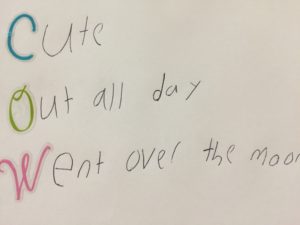 Cute
Out all day
Went over the moon